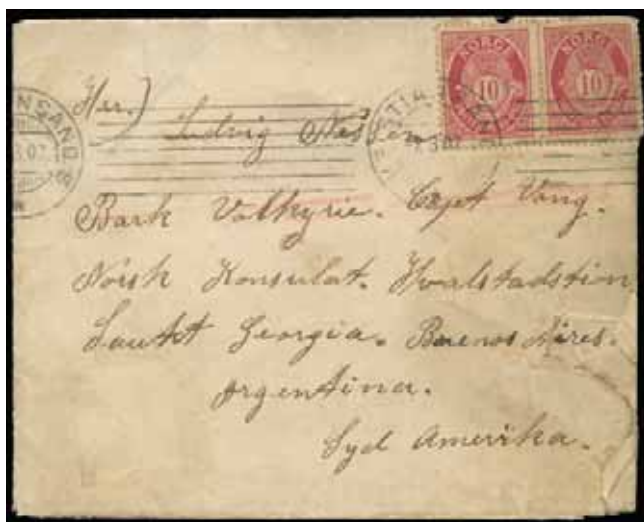 NORGE NORGE
10 10
NSAND
Herr.)
Ludvig
Bark Valkyrie. Capt Vang.
Norsk Konsulat. Hvalstadstion
Sautht Georgia. Buenos Aires.
Argentina.
Syd Amerika.